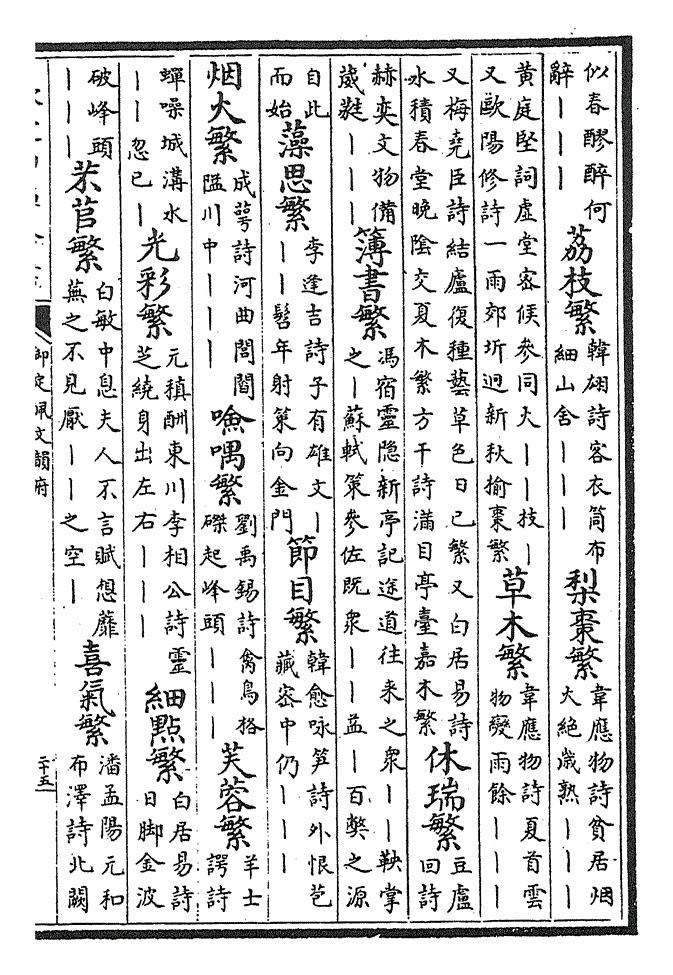 似春醪醉何辭｜｜｜荔枝繁韓翃詩客衣筒布細山舍｜｜｜梨棗繁韋應物詩貧居烟火絕歲熟｜｜｜
黃庭堅詞虛堂密候參同火｜｜枝｜又歐陽修詩一雨郊圻迥新秋揄棗繁草木繁韋應物詩夏首雲物變雨餘｜｜｜
又梅堯臣詩結廬復種藝草色日已繁又白居易詩水積春堂晚陰交夏木繁方干詩滿目亭臺嘉木繁休瑞繁豆盧回詩
赫奕文物備葳蕤｜｜｜簿書繁馮宿靈隱新亭記途道往来之衆｜｜鞅掌之｜蘇軾策參佐既衆｜｜益｜百弊之源
自此而始藻思繁李逢吉詩子有雄文｜｜｜髫年射策向金門節目繁韓愈咏笋詩外恨苞藏密中仍｜｜｜
烟火繁成咢詩河曲閭閻隘川中｜｜｜噞喁繁劉禹錫詩禽鳥格磔起峰頭｜｜｜芙蓉繁羊士諤詩
蟬噪城溝水｜｜忽已｜光彩繁元稹酬東川李相公詩靈芝繞身出左右｜｜｜細點繁白居易詩日脚金波
破峰頭｜｜｜芣苢繁白敏中息夫人不言賦想蘼蕪之不見厭｜｜之空｜喜氣繁潘孟陽元和布澤詩北闕
御定佩文韻府
二十五